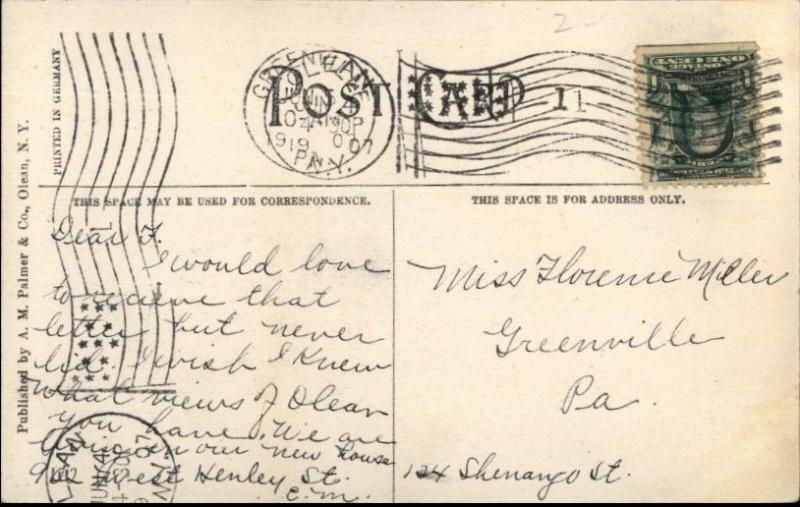 2-
POST CARD
11
GREENVILLE
PA.
N.Y.
ONE CENT
PRINTED IN GERMANY
Published by A. M. Palmer & Co., Olean, N. Y.
THIS SPACE MAY BE USED FOR CORRESPONDENCE.
THIS SPACE IS FOR ADDRESS ONLY.
Dear F.
I would love
to recieve that
letter but never
did. I wish I knew
what views of Olean
you have. We are
living in our new house
912 West Henley St.
C.M.
Miss Florence Miller
Greenville
Pa.
124 Shenango St.